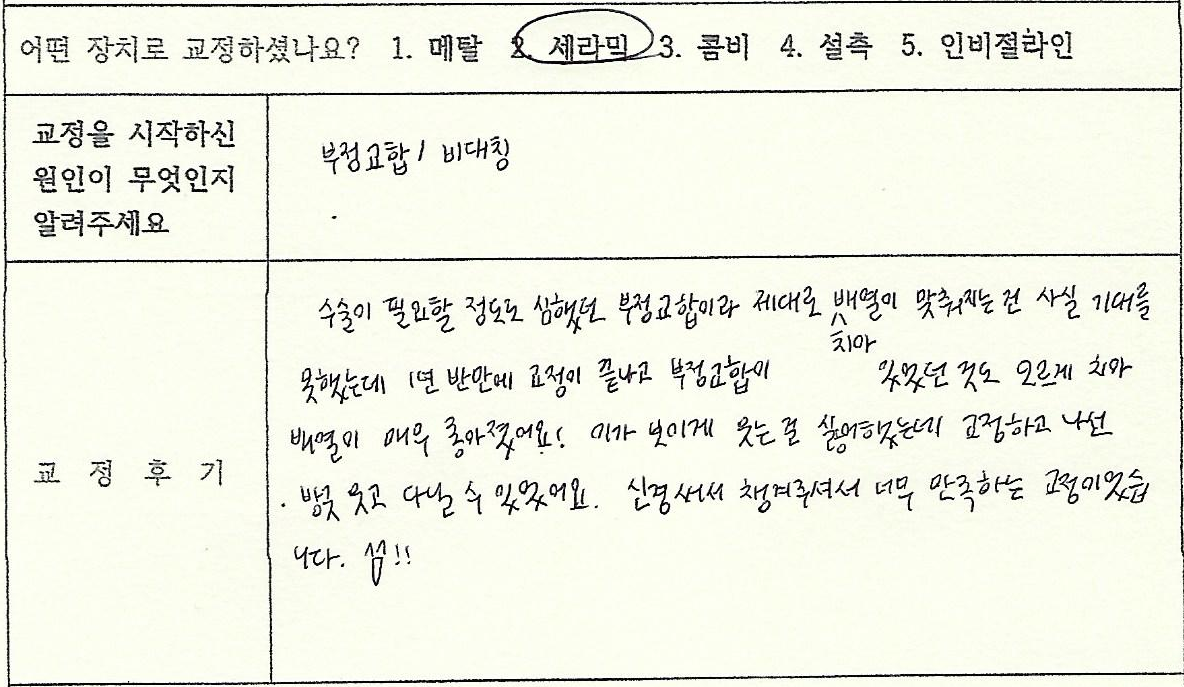 어떤 장치로 교정하셨나요? 1. 메탈 2. 세라믹 3. 콤비 4. 설측 5. 인비절라인
교정을 시작하신
원인이 무엇인지
알려주세요
부정교합 / 비대칭
교 정 후 기
수술이 필요할 정도로 심했던 부정교합이라 제대로 치아 배열이 맞춰지는 건 사실 기대를
못했는데 1년 반만에 교정이 끝나고 부정교합이 있었던 것도 모르게 치아
배열이 매우 좋아졌어요! 이가 보이게 웃는 걸 싫어했는데 교정하고 나선
방긋 웃고 다닐 수 있었어요. 신경써서 챙겨주셔서 너무 만족하는 교정이었습
니다.